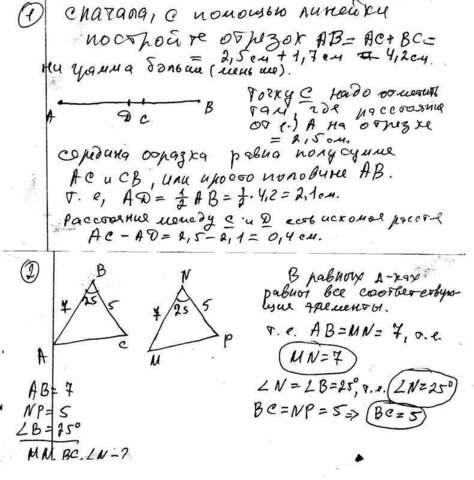 ① Сначала, с помощью линейки
постройте отрезок AB = AC + BC =
= 2,5 см + 1,7 см = 4,2 см.
ни грамма больше (меньше).
A D C B
Точку C надо отметить
там, где расстояние
от (·) A на отрезке
= 2,5 см.
середина отрезка равна полусумме
AC и CB, или просто половине AB.
т.е, AD = 1/2 AB = 1/2 · 4,2 = 2,1 см.
Расстояние между C и D есть искомое расст
AC − AD = 2,5 − 2,1 = 0,4 см.
②
B
7 25 5
A C
N
7 25 5
M P
AB = 7
NP = 5
∠B = 25°
MN. BC. ∠N − ?
В равных Δ-ках
равны все соответствую-
щие элементы.
т.е. AB = MN = 7, т.е.
MN = 7
∠N = ∠B = 25°, т.е. ∠N = 25°
BC = NP = 5 ⇒ BC = 5